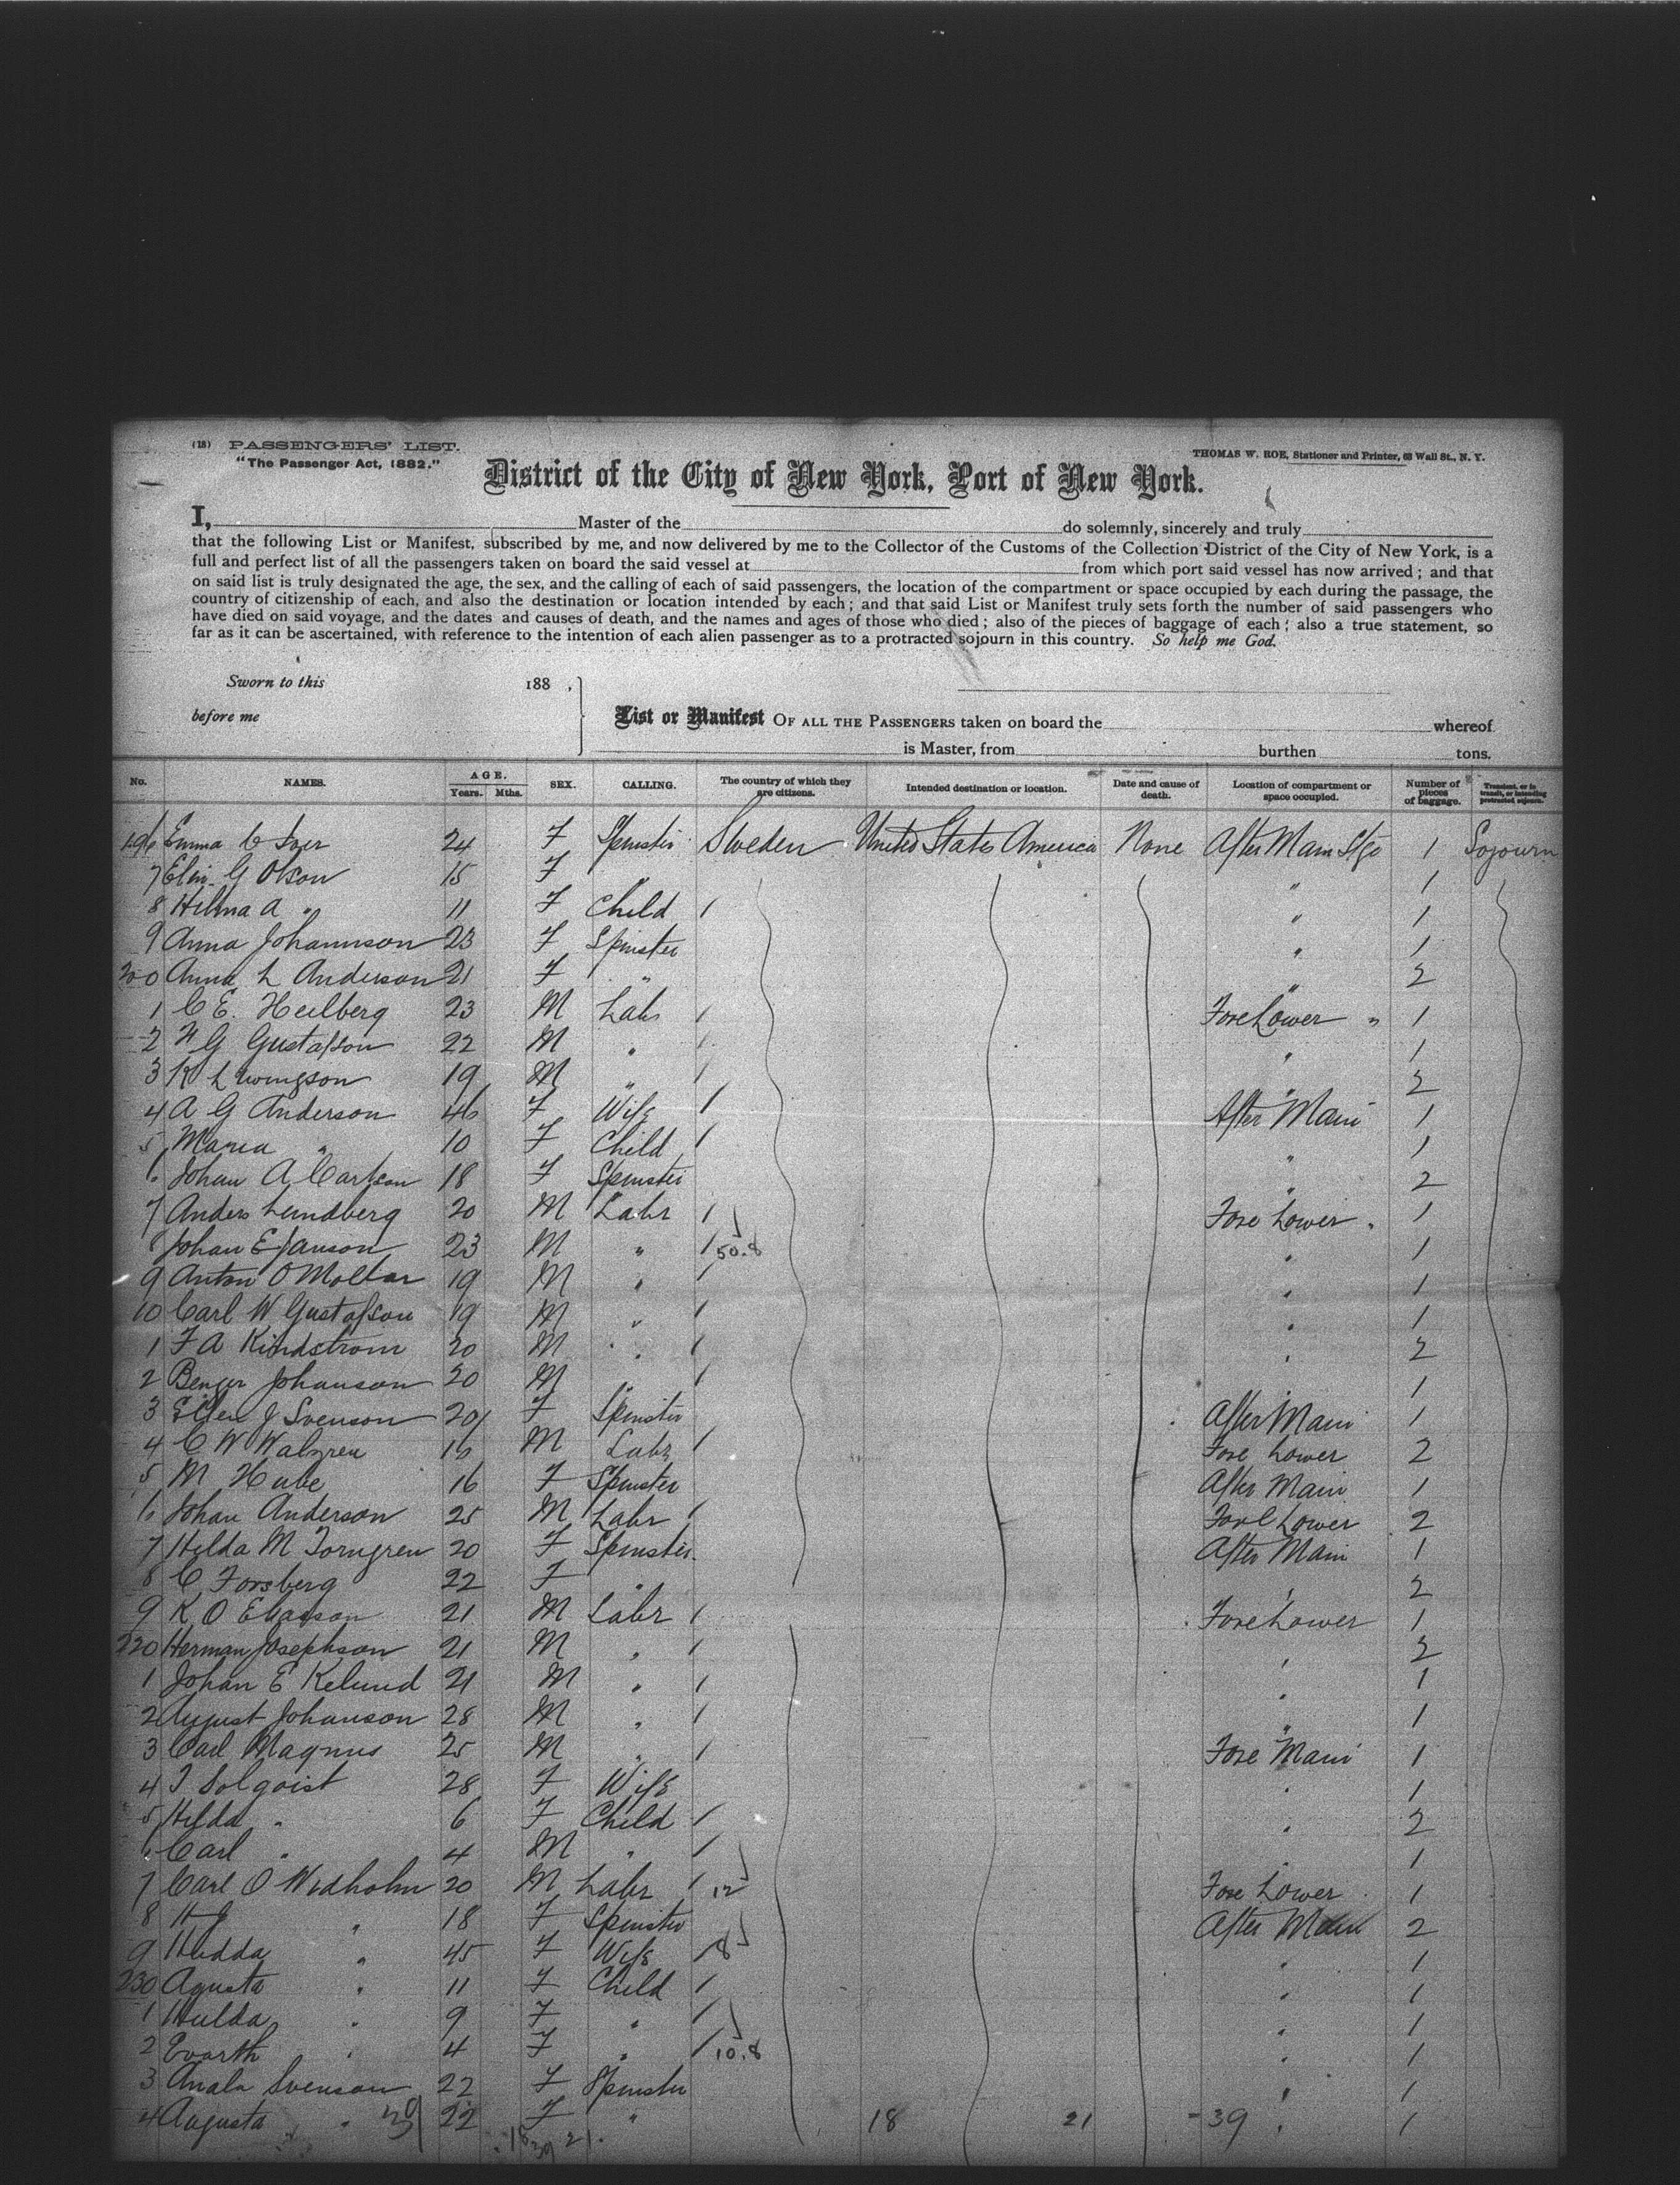 (18) PASSENGERS' LIST.
"The Passenger Act, 1882."
THOMAS W. ROE, Stationer and Printer, 63 Wall St., N. Y.
District of the City of New York, Port of New York.
I, Master of the do solemnly, sincerely and truly
that the following List or Manifest, subscribed by me, and now delivered by me to the Collector of the Customs of the Collection District of the City of New York, is a
full and perfect list of all the passengers taken on board the said vessel at from which port said vessel has now arrived; and that
on said list is truly designated the age, the sex, and the calling of each of said passengers, the location of the compartment or space occupied by each during the passage, the
country of citizenship of each, and also the destination or location intended by each; and that said List or Manifest truly sets forth the number of said passengers who
have died on said voyage, and the dates and causes of death, and the names and ages of those who died; also of the pieces of baggage of each; also a true statement, so
far as it can be ascertained, with reference to the intention of each alien passenger as to a protracted sojourn in this country. So help me God.
Sworn to this 188 ,
before me
List or Manifest OF ALL THE PASSENGERS taken on board the whereof
is Master, from burthen tons.
No. NAMES. AGE. Years. Mths. SEX. CALLING. The country of which they are citizens. Intended destination or location. Date and cause of death. Location of compartment or space occupied. Number of pieces of baggage. Transient, or in transit, or intending protracted sojourn.
196 Emma C 24 F Spinster Sweden United States America None After Main Stge 1 Sojourn
7 Elin G Olson 15 F " " 1
8 Hilma A " 11 F Child / " 1
9 Anna Johannson 23 F Spinster " 1
200 Anna L Anderson 21 F " " 2
1 C E. Heilberg 23 M Labr / Fore Lower " 1
2 F G Gustafson 22 M " / " 1
3 K L 19 M " / " 2
4 A G Anderson 46 F Wife / After Main 1
5 Maria " 10 F Child / " 1
6 Johan A Carlson 18 F Spinster " 2
7 Anders Lundberg 20 M Labr / Fore Lower " 1
8 Johan E Janson 23 M " / 50.8 " 1
9 Anton O 19 M " / " 1
10 Carl W Gustafson 19 M " / " 1
1 F A Kindstrom 20 M " / " 2
2 Johanson 20 M " / " 1
3 Ellen J Svenson 20 F Spinster After Main 1
4 C W Walgren 16 M Labr / Fore Lower 2
5 M Hube 16 F Spinster After Main 1
6 Johan Anderson 25 M Labr / Fore Lower 2
7 Hilda M Torngren 20 F Spinster After Main 1
8 C Forsberg 22 F " " 2
9 K O Eliasson 21 M Labr / Fore Lower 1
220 Herman Josephson 21 M " / " 2
1 Johan E Kelund 21 M " / " 1
2 August Johanson 28 M " / " 1
3 Carl Magnus 25 M " / Fore Main 1
4 28 F Wife " 1
5 Hilda " 6 F Child / " 2
6 Carl " 4 M " / " 1
7 Carl O Widholm 20 M Labr / 12 Fore Lower 1
8 H J " 18 F Spinster After Main 2
9 Hedda " 45 F Wife / 8 " 1
230 Agusta " 11 F Child / " 1
1 Hulda " 9 F " / " 1
2 Evarth " 4 F " / 10.8 " 1
3 Svenson 22 F Spinster " 1
4 Augusta " 39 22 F " 18 21 39 " 1
18 39 21